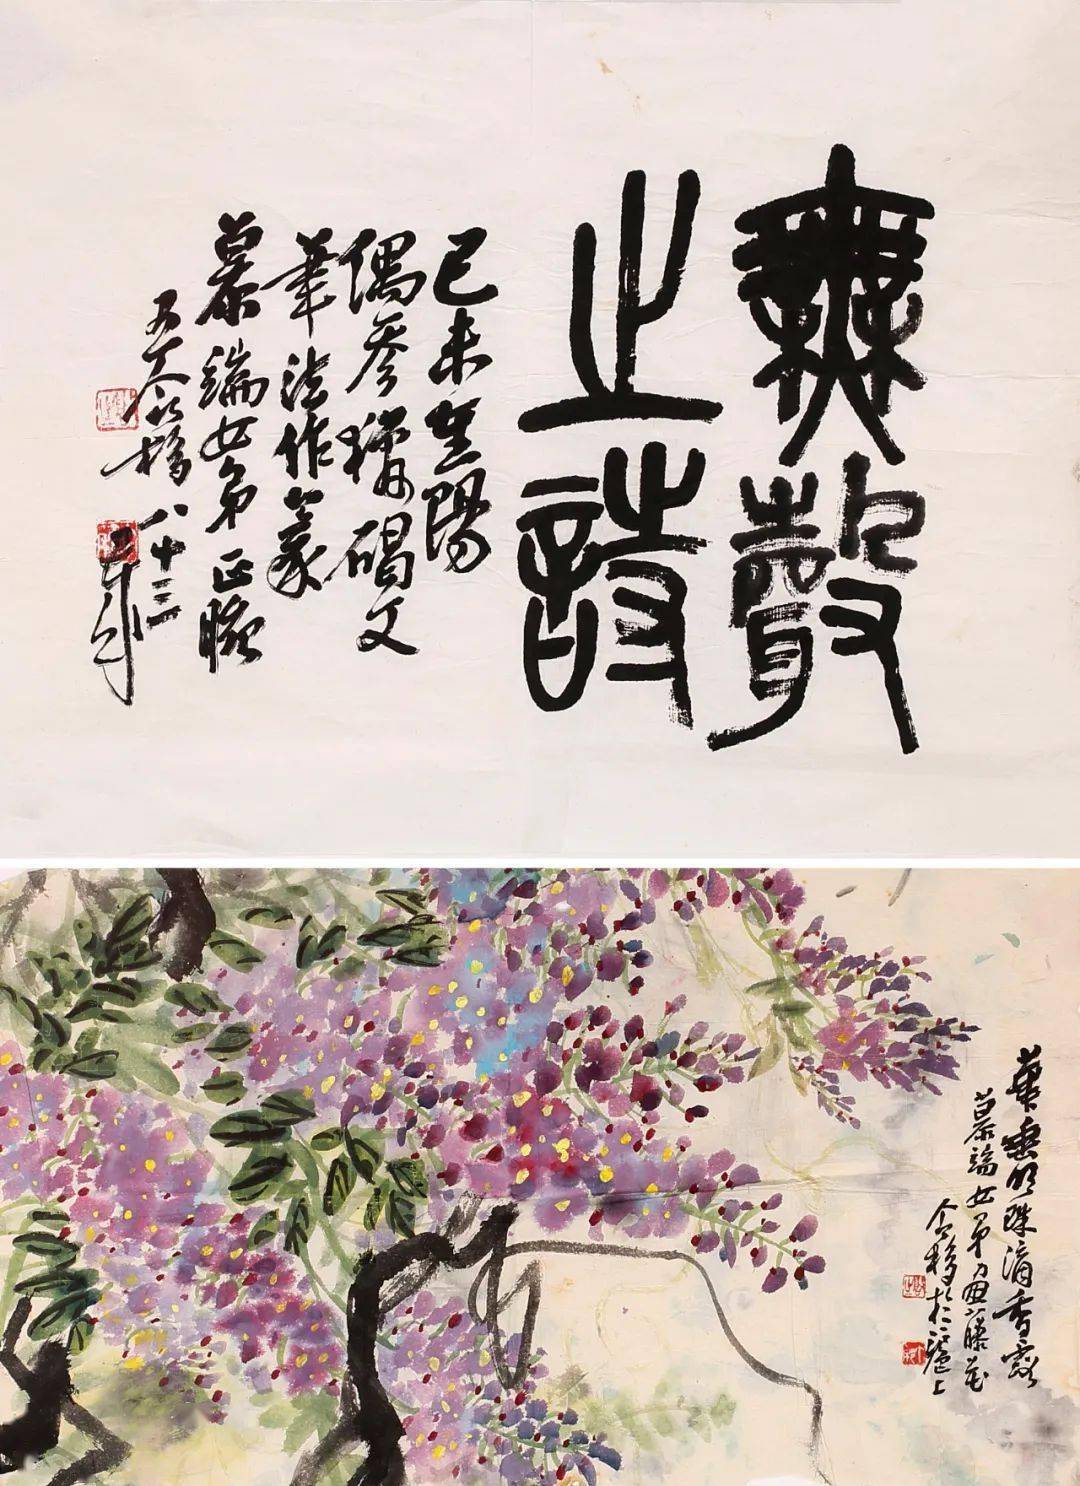 無聲
之詩
己未重陽
偶參獵碣文
筆法作篆
慕端女弟正腕
王个簃八十三年
華垂明珠滴香露
慕端女弟畫藤花
个簃於滬上